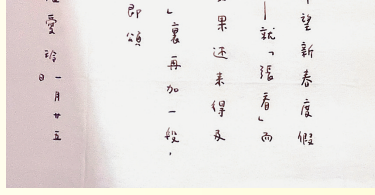 望新春度假
—就「張看」而
果还来得及
」裏再加一段，
即頌
愛玲
一月廿五
日